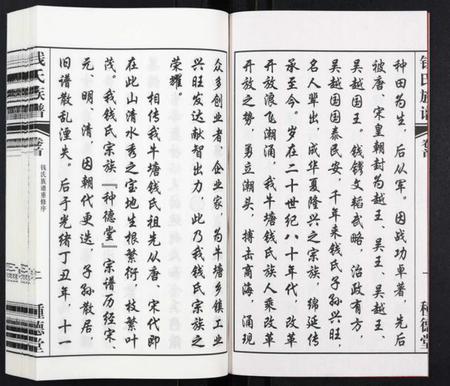 种田为生，后从军。因战功卓著，先后
被唐、宋皇朝封为越王、吴王、吴越王、
吴越国王。钱镠文韬武略，治政有方，
吴越国国泰民安，千年来钱氏子孙兴旺，
名人辈出，成华夏隆兴之宗族，绵延传
承至今。岁在二十世纪八十年代，改革
开放浪飞潮涌，我牛塘钱氏族人乘改革
开放之势，勇立潮头，搏击商海，涌现
钱氏族谱
卷首
种德堂
众多创业者、企业家，为牛塘乡镇工业
兴旺发达献智出力，此乃我钱氏宗族之
荣耀。
相传我牛塘钱氏祖先从唐、宋代即
在此山清水秀之宝地生根繁衍，枝繁叶
茂。我钱氏宗族『种德堂』宗谱历经宋、
元、明、清，因朝代更迭，子孙散居，
旧谱散乱湮失。后于光绪丁丑年，十一
钱氏族谱
卷首
钱氏族谱重修序
种德堂